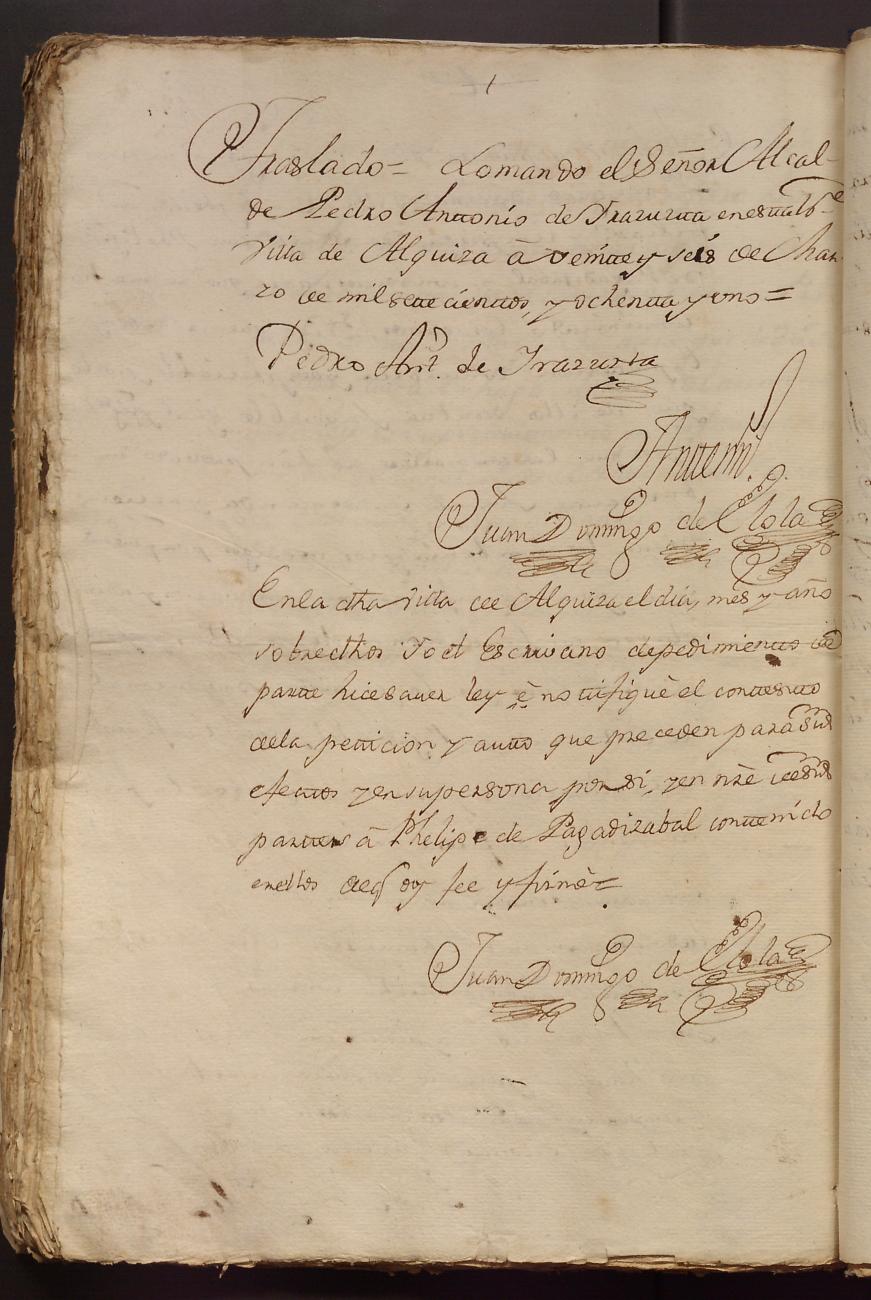 Traslado = Lo mando el Señor Alcal-
de Pedro Anttonio de Yrazuzta en esta No.e
Villa de Alquiza à veintte y seis de Mar
zo de mil sette cienttos, y ochentta y uno =
Pedro Antt. de Yrazuzta
Anttemi.
Juan Domingo de Elola
En la dha Villa de Alquiza el dia, mes y año
sobredhos Yo el Escrivano de pedimientto de
partte hice saver ley è nottifiquè el conttenido
de la petticion y autto que preceden para sus
efecttos y en su persona por si, y en nre de sus
parttes à Phelipe de Pagadizabal conttenido
en ellos de q doy fee y firmè =
Juan Domingo de Elola